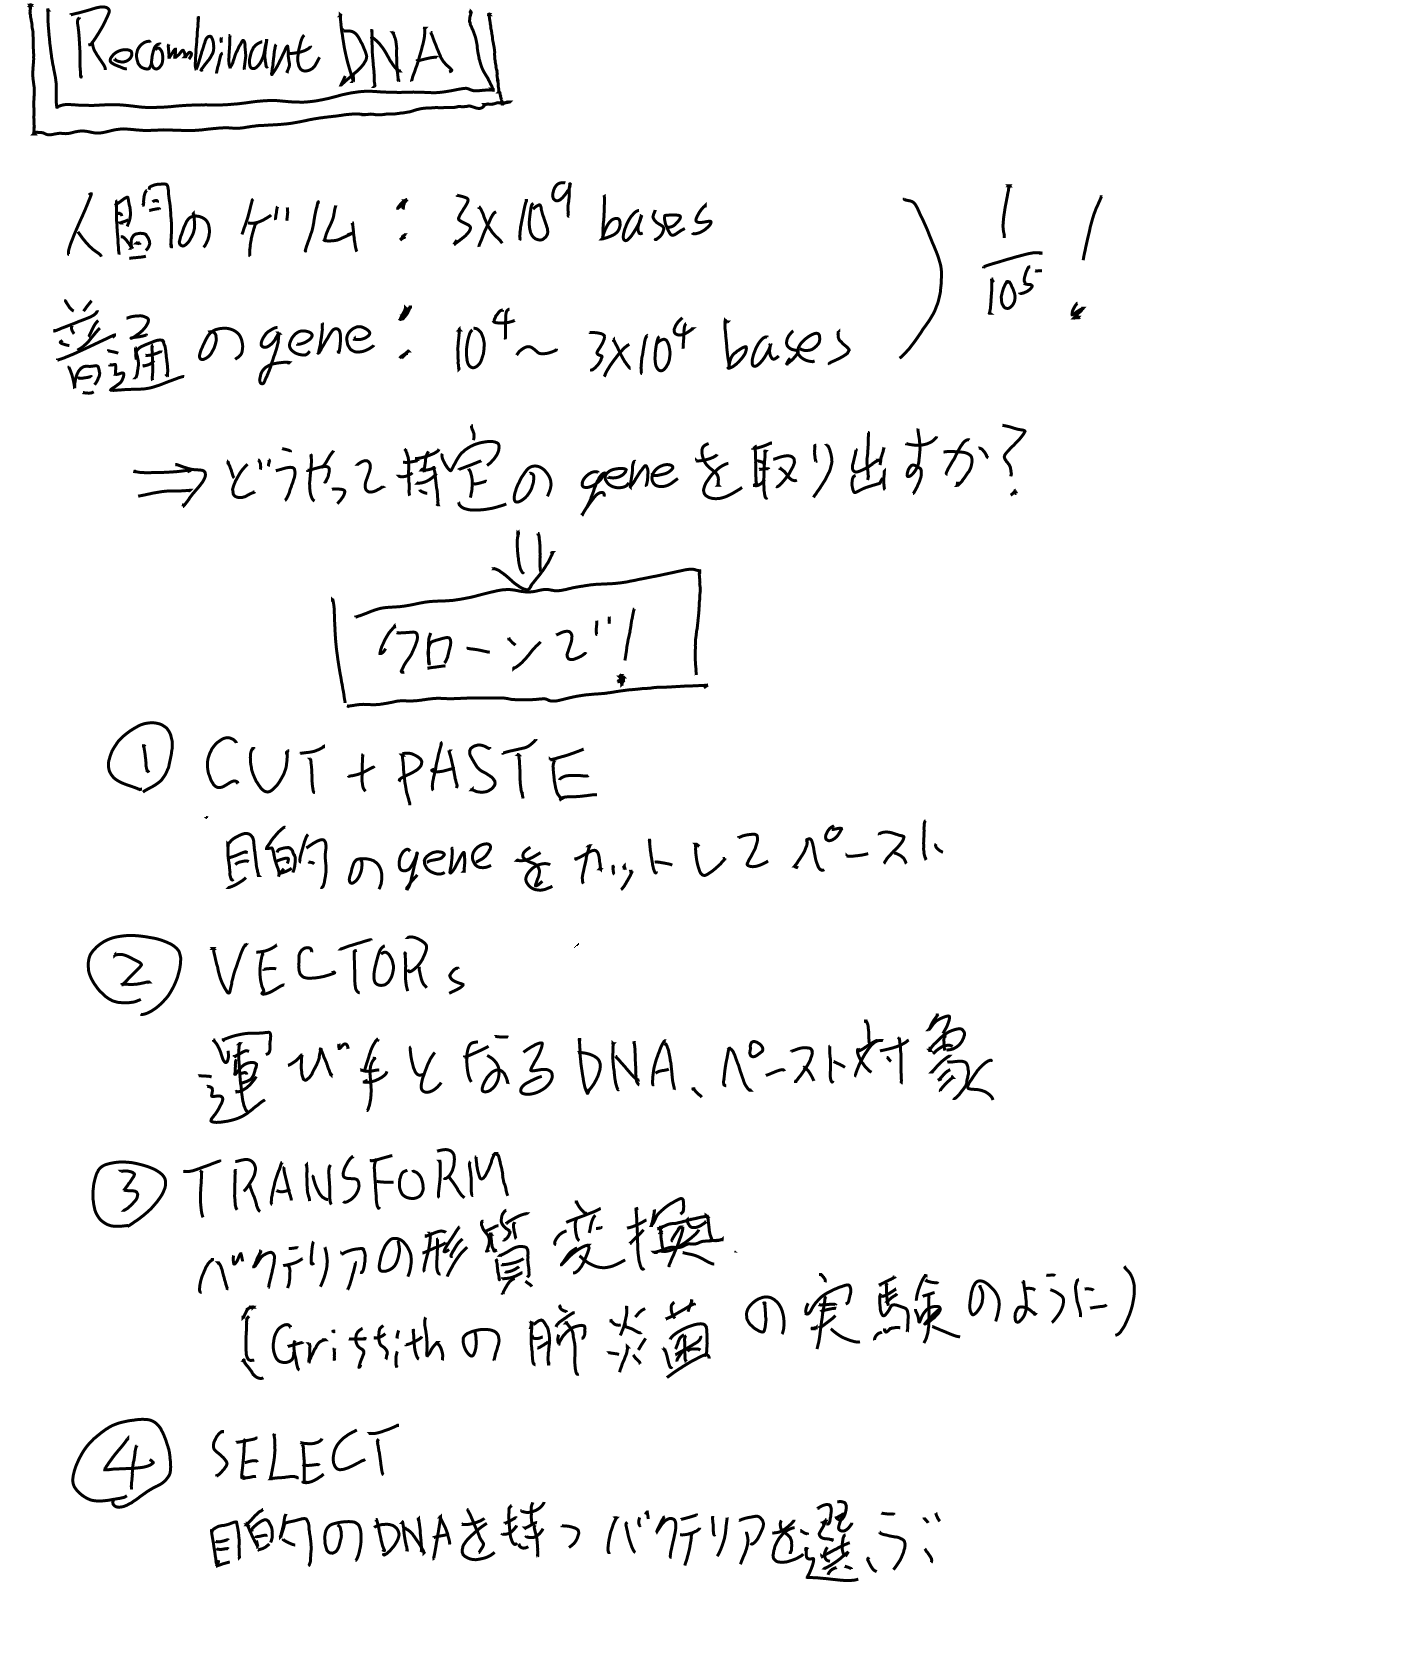 Recombinant DNA
人間のゲノム: 3×10⁹ bases
普通のgene: 10⁴〜3×10⁴ bases
1/10⁵!
⇒どうやって特定のgeneを取り出すか?
⇓
クローンで!
① CUT+PASTE
目的のgeneをカットしてペースト
② VECTORs
運び手となるDNA、ペースト対象
③ TRANSFORM
バクテリアの形質変換
(Griffithの肺炎菌の実験のように)
④ SELECT
目的のDNAを持つバクテリアを選ぶ